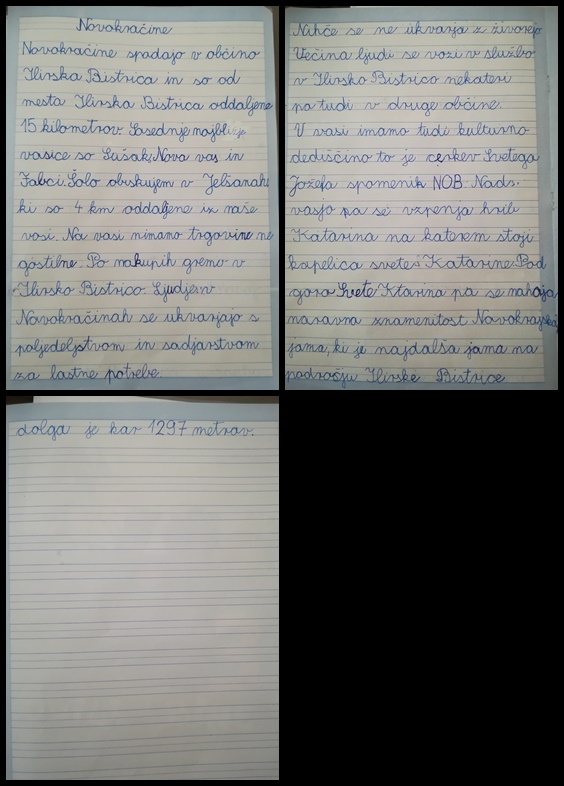 Novokračine
Novokračine spadajo v občino
Ilirska Bistrica in so od
mesta Ilirska Bistrica oddaljene
15 kilometrov Sosednje najbližje
vasice so Sušak, Nova vas in
Fabci. Šolo obiskujem v Jelšanah
ki so 4 km oddaljene iz naše
vasi. Na vasi nimamo trgovine ne
gostilne. Po nakupih gremo v
Ilirsko Bistrico. Ljudje v
Novokračinah se ukvarjajo s
poljedelstvom in sadjarstvom
za lastne potrebe.
Nihče se ne ukvarja z živorejo
Večina ljudi se vozi v službo
v Ilirsko Bistrico nekateri
pa tudi v druge občine.
V vasi imamo tudi kulturno
dediščino to je cerkev Svetega
Jožefa spomenik NOB. Nad
vasjo pa se vzpenja hrib
Katarina na katerem stoji
kapelica svete Katarine. Pod
goro Svete Ktarina pa se nahaja
naravna znamenitost Novokrajska
jama, ki je najdalša jama na
področju Ilirske Bistrice
dolga je kar 1297 metrov.